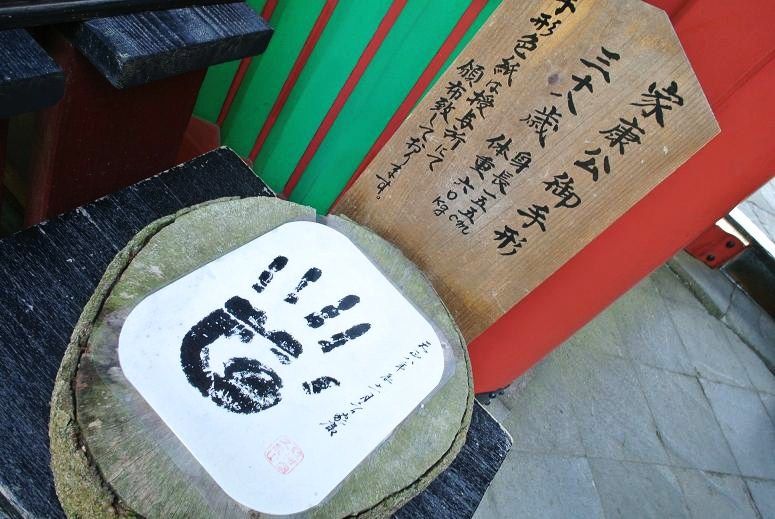 家康公御手形
三十八歳 身長一五五cm
体重六〇kg
手形色紙は授与所にて
頒布致しております。